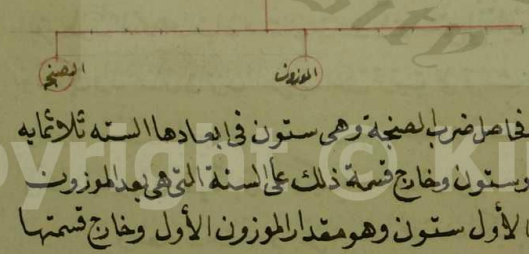 الصنجة
الموزون
فحاصل ضرب الصنجة وهى ستون فى ابعادها السته ثلاثمايه
وستون وخارج قسمة ذلك على الستة التى هى بعد الموزون
الأول ستون وهو مقدار الموزون الأول وخارج قسمتها